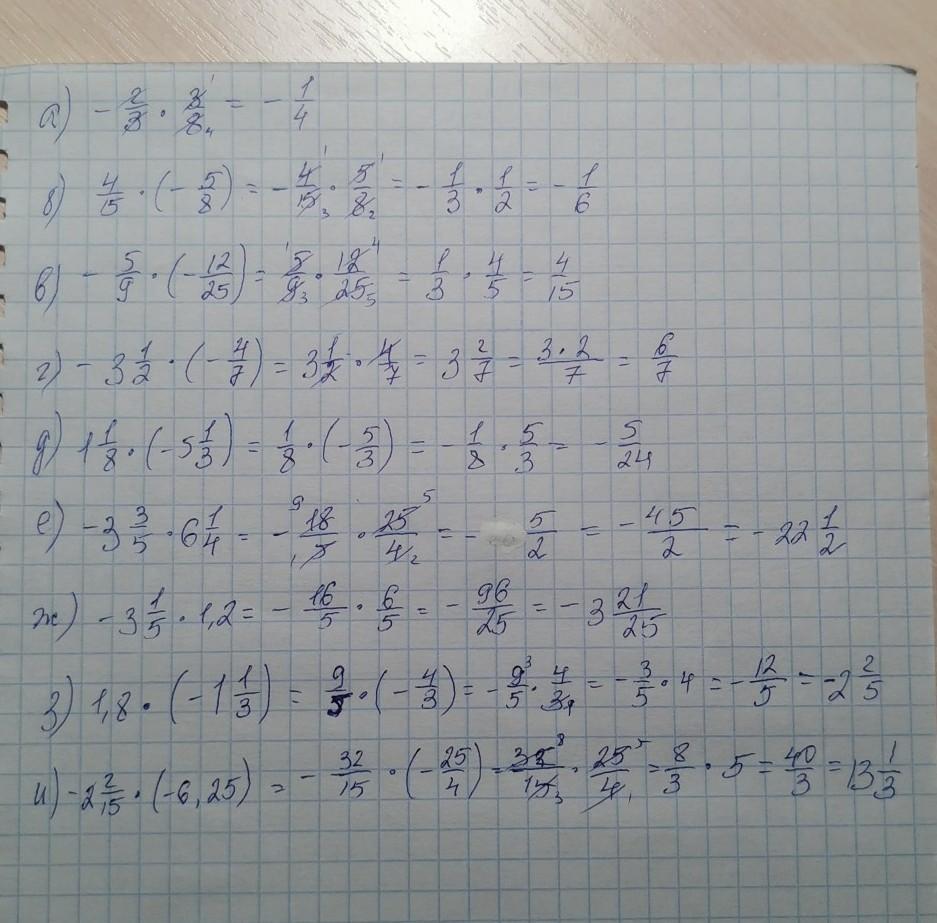 а) - 2/3 · 3/8 = - 1/4
б) 4/15 · (- 5/8) = - 4/15 · 5/8 = - 1/3 · 1/2 = - 1/6
в) - 5/9 · (- 12/25) = 5/9 · 12/25 = 1/3 · 4/5 = 4/15
г) - 3 1/2 · (- 4/7) = 3 1/2 · 4/7 = 3 2/7 = 3·2/7 = 6/7
д) 1 1/8 · (-5 1/3) = 1/8 · (- 5/3) = - 1/8 · 5/3 = - 5/24
е) -3 3/5 · 6 1/4 = - 18/5 · 25/4 = - 5/2 = - 45/2 = - 22 1/2
ж) -3 1/5 · 1,2 = - 16/5 · 6/5 = - 96/25 = - 3 21/25
з) 1,8 · (-1 1/3) = 9/5 · (- 4/3) = - 9/5 · 4/3 = - 3/5 · 4 = - 12/5 = -2 2/5
и) -2 2/15 · (-6,25) = - 32/15 · (- 25/4) = 32/15 · 25/4 = 8/3 · 5 = 40/3 = 13 1/3